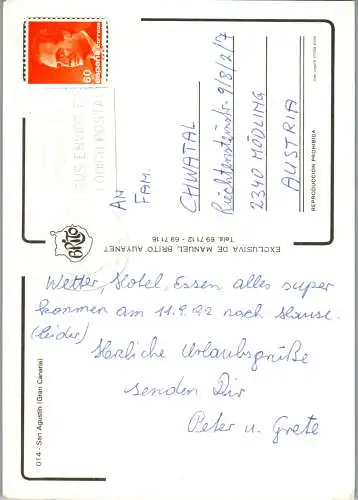 Wetter, Hotel, Essen alles super
kommen am 11.9.92 nach Hause.
(leider)
Herzliche Urlaubsgrüße
senden Dir
Peter u. Grete
AN
FAM.
CHWATAL
Liechtensteinstr. 9/8/2/7
2340 MÖDLING
AUSTRIA
014 - San Agustin (Gran Canaria)
BRITO
EXCLUSIVA DE MANUEL BRITO AUYANET
Tels. 69 71 12 - 69 71 16
REPRODUCCION PROHIBIDA
60